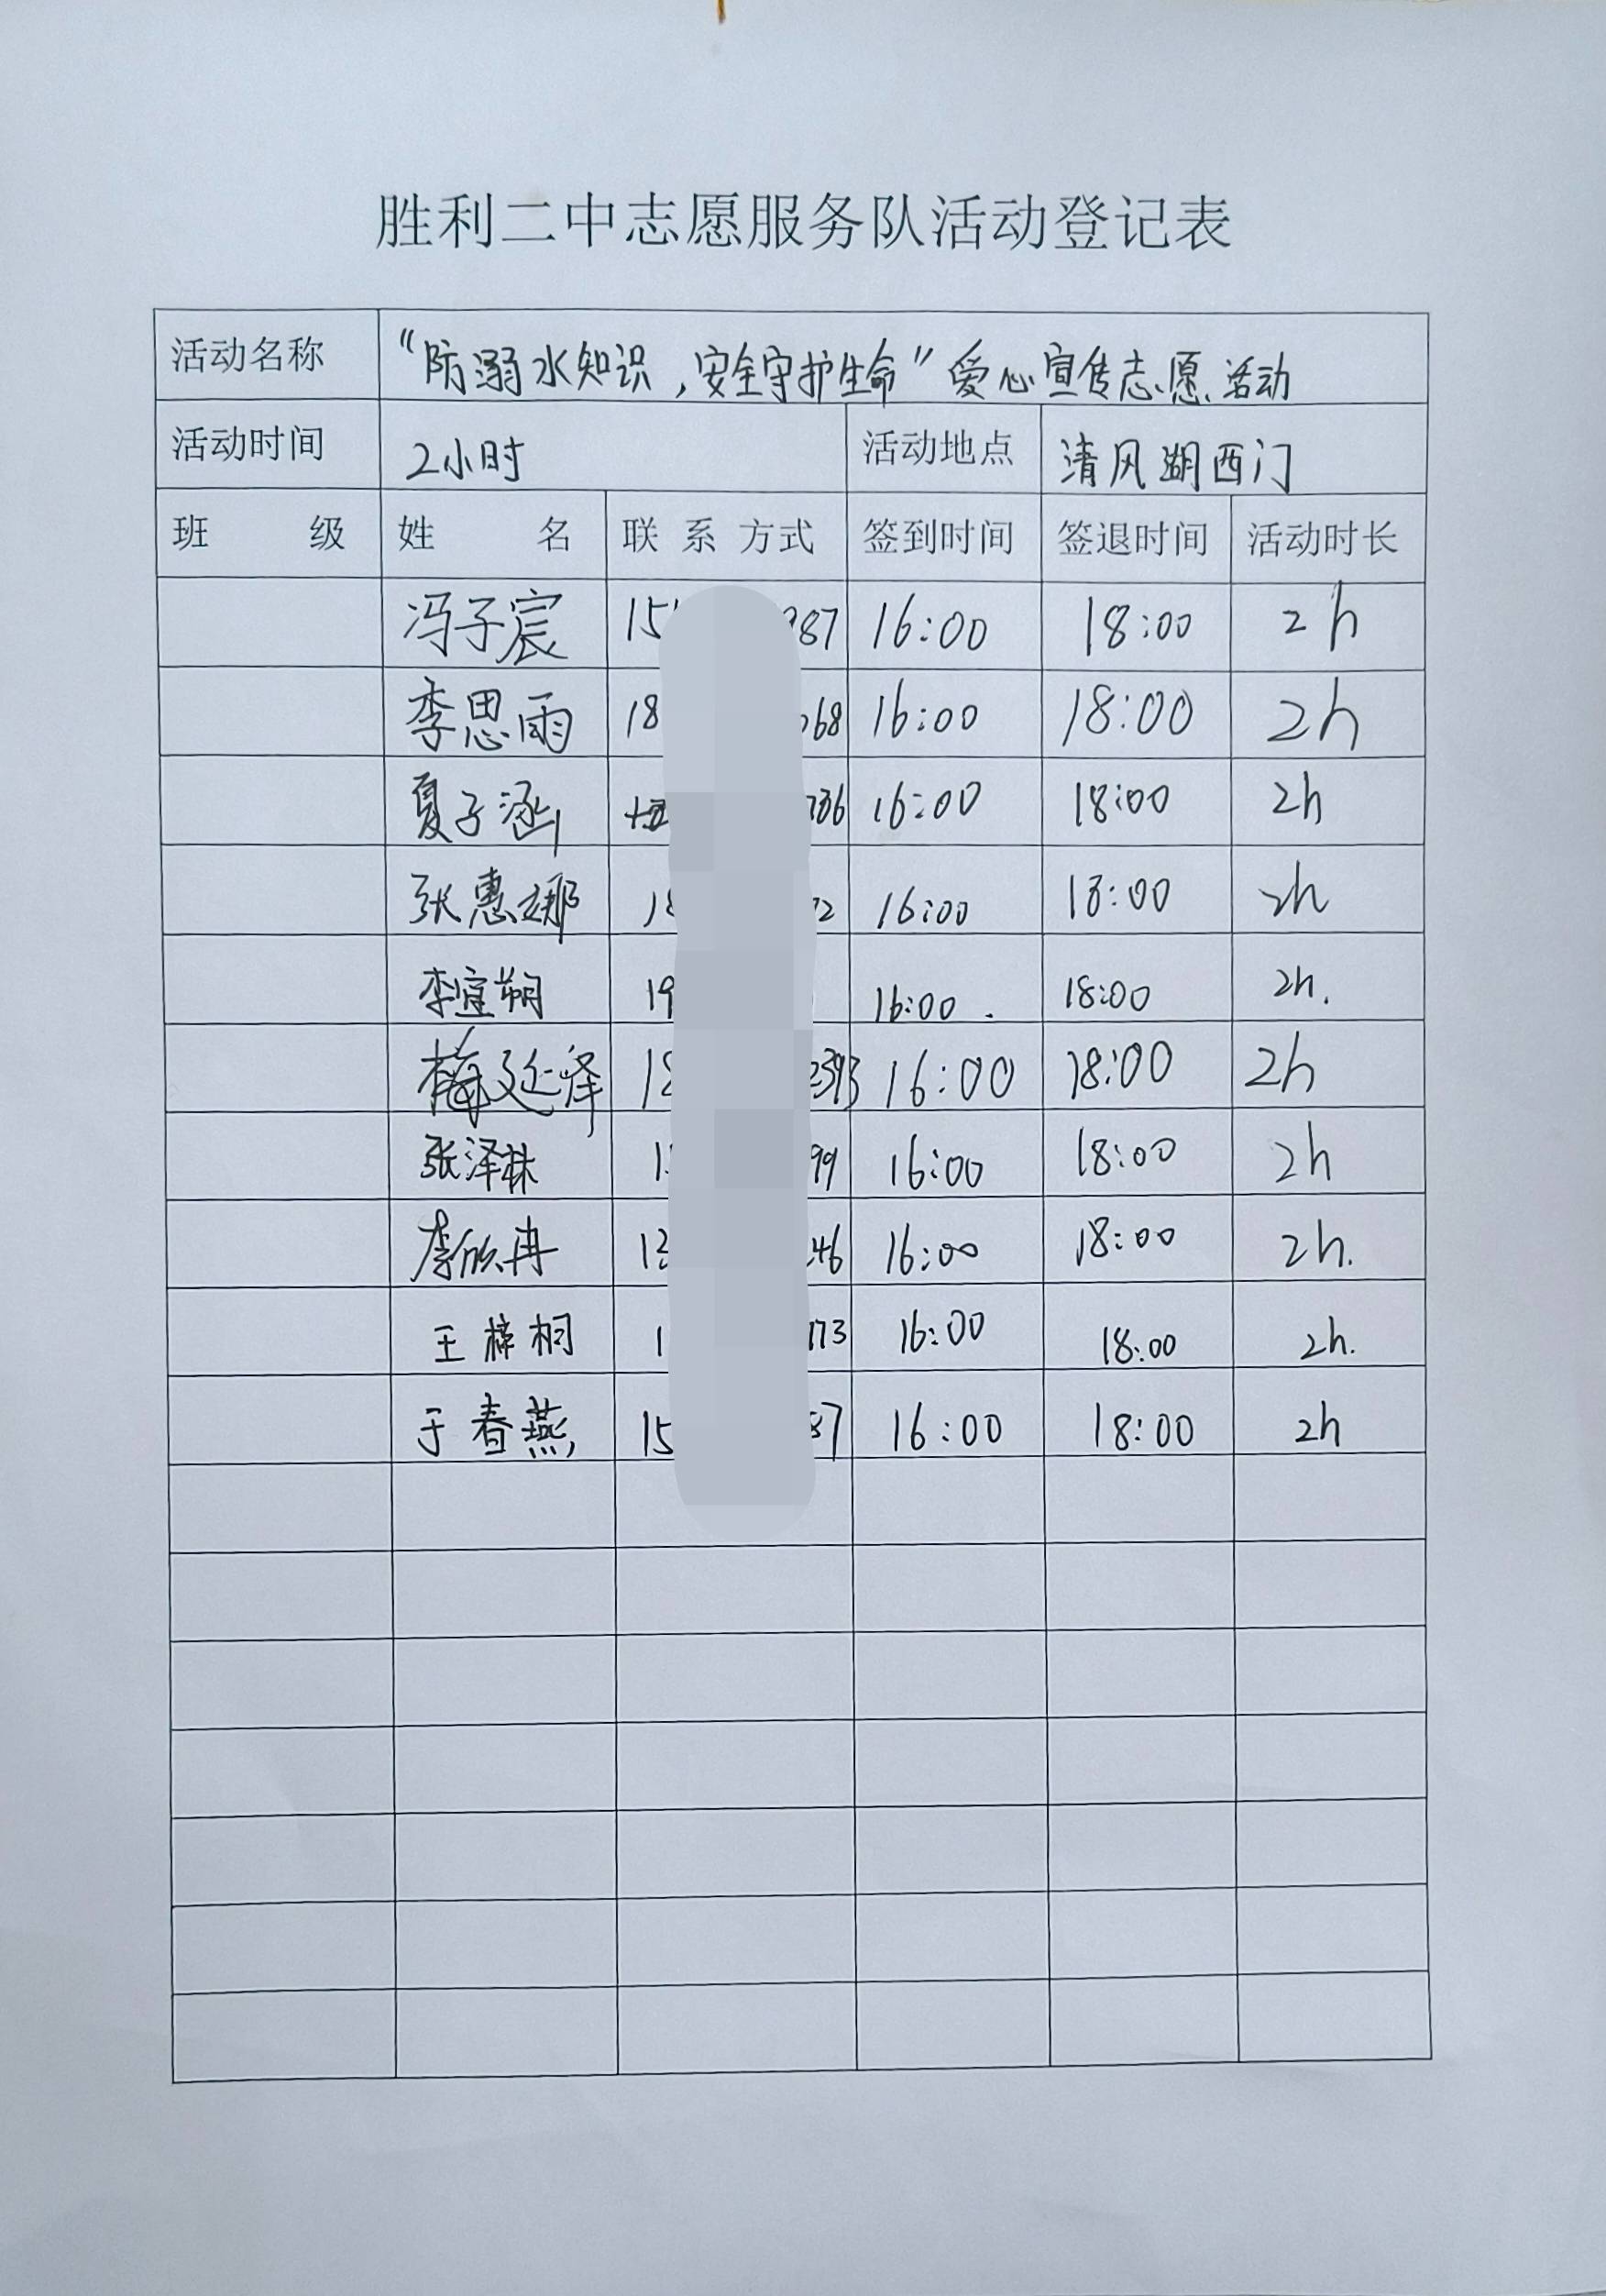 胜利二中志愿服务队活动登记表
活动名称 “防溺水知识，安全守护生命”爱心宣传志愿活动
活动时间 2小时 活动地点 清风湖西门
班 级 姓 名 联 系 方式 签到时间 签退时间 活动时长
冯子宸 15 987 16:00 18:00 2h
李思雨 18 68 16:00 18:00 2h
夏子涵 736 16:00 18:00 2h
张惠娜 18 72 16:00 18:00 2h
李宜朔 19 16:00. 18:00 2h.
梅延泽 18 2393 16:00 18:00 2h
张泽林 1 99 16:00 18:00 2h
李欣冉 13 46 16:00 18:00 2h.
王梓桐 1 773 16:00 18:00 2h.
于春燕 15 87 16:00 18:00 2h